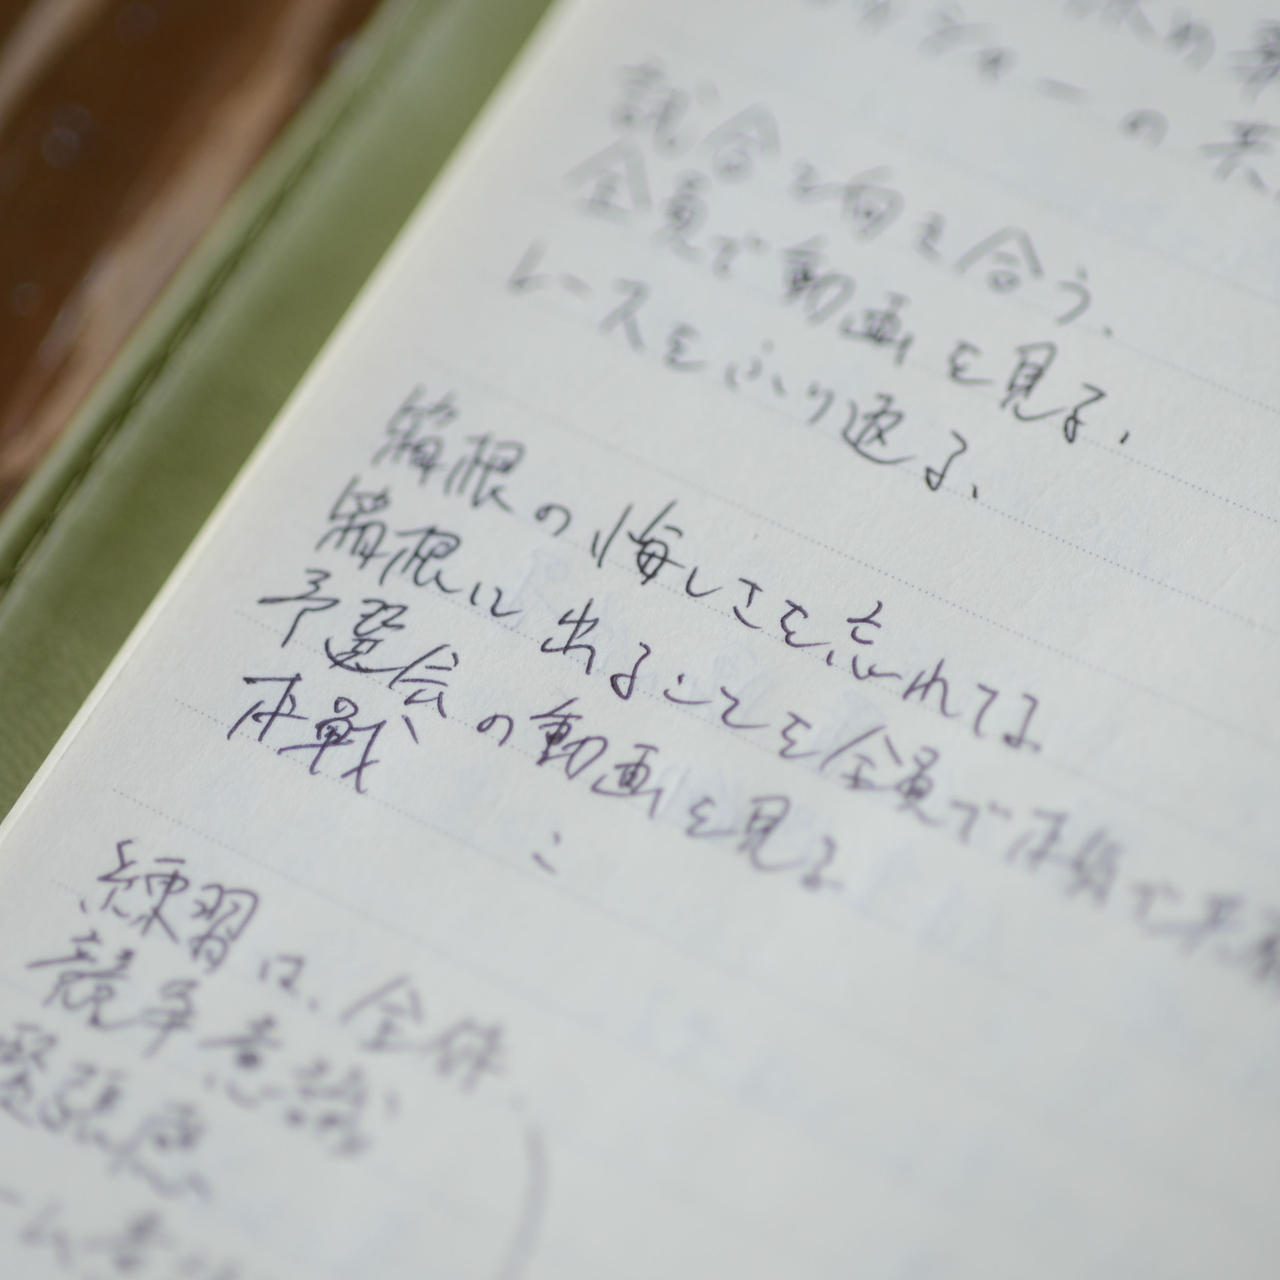 試合と向き合う、
全員で動画を見る、
レースをふり返る、
箱根の悔しさを忘れてる
箱根に出ることを全員で本気で共
予選会の動画を見る
本戦
練習は、全体
競争意識
緊張感